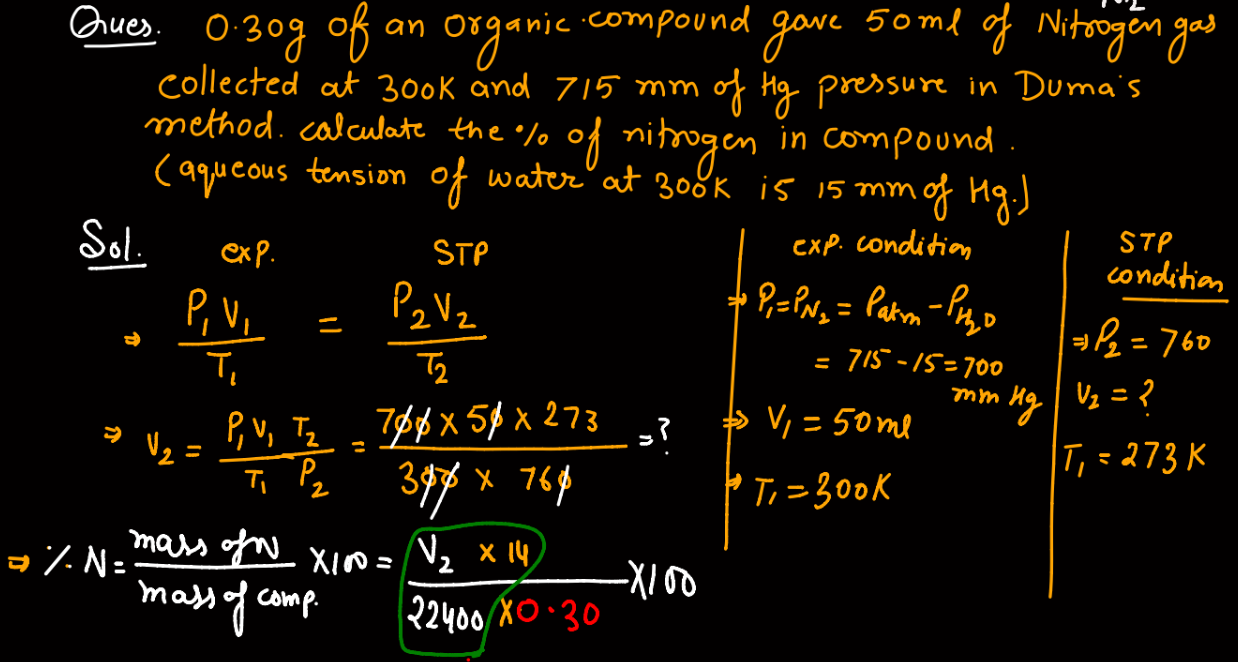 N2
Ques. 0.30g of an organic compound gave 50ml of Nitrogen gas
collected at 300K and 715 mm of Hg pressure in Duma's
method. calculate the % of nitrogen in compound.
(aqueous tension of water at 300K is 15 mm of Hg.)
Sol. exp. STP
⇒ P₁V₁/T₁ = P₂V₂/T₂
⇒ V₂ = P₁V₁T₂/T₁P₂ = 700 × 50 × 273/300 × 760 = ?
⇒ % N = mass of N/mass of comp. × 100 = V₂ × 14/22400 × 0.30 × 100
exp. condition
⇒ P₁ = P_N₂ = Patm - P_H₂O
= 715 - 15 = 700
mm Hg
⇒ V₁ = 50ml
⇒ T₁ = 300K
STP
condition
⇒ P₂ = 760
V₂ = ?
T₁ = 273 K